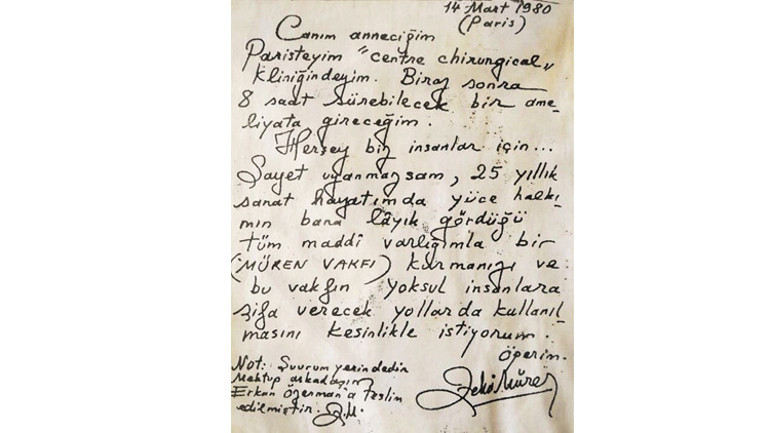 14 Mart 1980
(Paris)
Canım anneciğim
Paristeyim "centre chirungical„
kliniğindeyim. Biraz sonra
8 saat sürebilecek bir ame-
liyata gireceğim.
Herşey biz insanlar için...
Şayet uyanmazsam, 25 yıllık
sanat hayatımda yüce halkı-
mın bana lâyık gördüğü
tüm maddî varlığımla bir
(MÜREN VAKFI) kurmanızı ve
bu vakfın yoksul insanlara
şifa verecek yollarda kullanıl-
masını kesinlikle istiyorum.
Öperim.
Zeki Müren
Not: Şuurum yerindedir
Mektup arkadaşım
Erkan Özerman'a teslim
edilmiştir. Z.M.